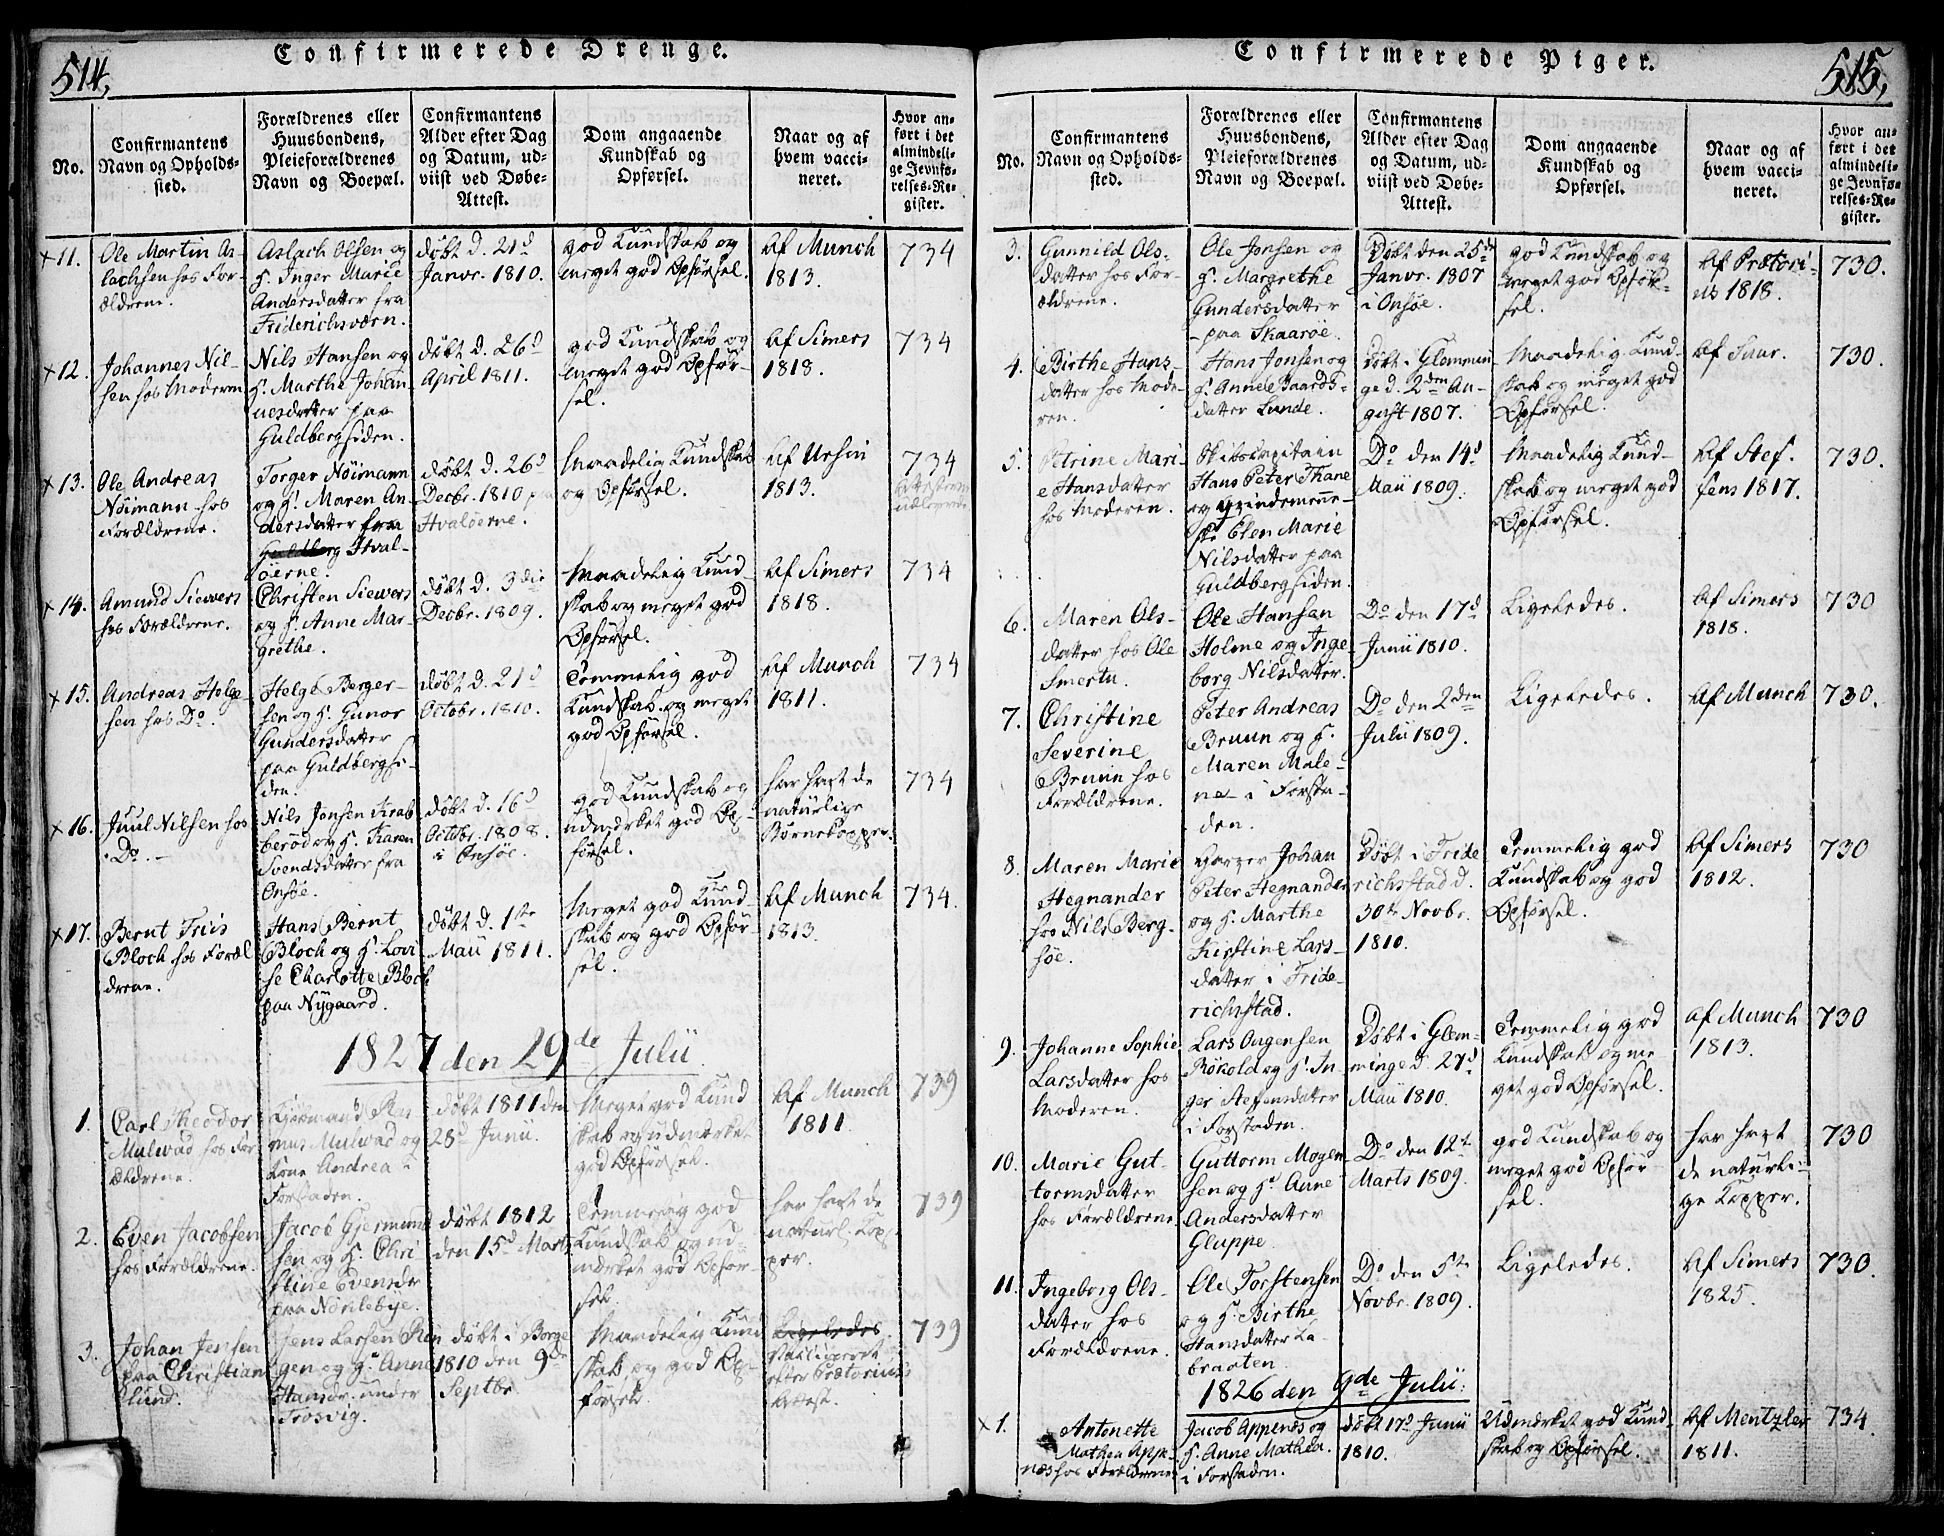 514,
Confirmerede Drenge.
No.
Confirmantens
Navn og Opholds-
sted.
Forældrenes eller
Huusbondens,
Pleieforældrenes
Navn og Boepæl.
Confirmantens
Alder efter Dag
og Datum, ud-
viist ved Døbe-
Attest.
Dom angaaende
Kundskab og
Opførsel.
Naar og af
hvem vacci-
neret.
Hvor an-
ført i det
almindeli-
ge Jevnfø-
relses-Re-
gister.
x 11.
Ole Martin As-
lachsen hos For-
ældrene.
Aslach Olsen og
H. Inger Marie
Andersdatter fra
Friderichsværn.
døbt d. 21d
Janvr. 1810.
god Kundskab og
meget god Opførsel.
Af Munch
1813.
734
x 12.
Johannes Nil-
sen hos Moderen
Nils Hansen og
H. Marthe Johan-
nesdatter paa
Guldbergsiden.
døbt d. 26d
April 1811.
god Kundskab og
meget god Opfør-
sel.
Af Simers
1818.
734
x 13.
Ole Andreas
Nöimann hos
Forældrene.
Torger Nöimann
og H. Maren An-
dersdatter fraa
Guldberg Hval-
öerne.
døbt d. 26d
Decbr. 1810 paa
Hvalöerne.
Maadelig Kundskab
og Opførsel.
Af Ursin
1813.
734
x 14.
Amund Siewers
hos Forældrene.
Christen Siewers
og H. Anne Mar-
grethe.
døbt d. 3die
Decbr. 1809.
Maadelig Kund-
skab og meget god
Opførsel.
Af Simers
1818.
734
x 15.
Andreas Helge-
sen hos Do.
Helge Berger-
sen og H. Gunor
Gundersdatter
paa Guldbergsi-
den.
døbt d. 21d
Octobr. 1810.
Temmelig god
Kundskab og meget
god Opførsel.
Af Munch
1811.
734
x 16.
Juul Nilsen hos
Do.
Nils Jensen Krab-
beröd og H. Karen
Svendsdatter fra
Onsöe.
døbt d. 16d
Octbr. 1808.
i Onsöe.
god Kundskab og
udmærket god Op-
førsel.
har havt de
naturlige
Børnekopper.
734
x 17.
Bernt Friis
Bloch hos Foræl-
drene.
Hans Bernt
Bloch og H. Lovi-
se Charlotte Bloch
paa Nygaard.
døbt d. 1ste
Maii 1811.
Meget god Kund-
skab og god Opfør-
sel.
Af Munch
1813.
734.
1827 den 29de Julii
1.
Carl Theodor
Mulvad hos For-
ældrene.
Kjøbmand Ras-
mus Mulvad og
Kone Andrea i
Forstaden.
døbt 1811 den
28d Junii.
Meget god Kund
skab og udmærket
god Opførsel.
Af Munch
1811.
739
2.
Even Jacobsen
hos Forældrene.
Jacob Gjermund
sen og H. Chri
stine Evensdr
paa Nordlebye.
døbt 1812
den 15d Marts
Temmelig god
Kundskab og ud-
mærket god Opfør-
sel.
har havt de
naturl. Kop-
per.
739
3.
Johan Jensen
paa Christian
slund.
Jens Larsen Rin
gen og H. Anne
Hansdr. under
Trosvig.
døbt i Borge
1810 den 9de
Septbr
Maadelig Kund
skab og god Op-
førsel.
Ligeledes.
efter Prætorius's
Attest.
739
515,
Confirmerede Piger.
No.
Confirmantens
Navn og Opholds-
sted.
Forældrenes eller
Huusbondens,
Pleieforældrenes
Navn og Boepæl.
Confirmantens
Alder efter Dag
og Datum, ud-
viist ved Døbe-
Attest.
Dom angaaende
Kundskab og
Opførsel.
Naar og af
hvem vacci-
neret.
Hvor an-
ført i det
almindeli-
ge Jevnfø-
relses-Re-
gister.
3.
Gunnild Ols-
datter hos For-
ældrene.
Ole Jonsen og
H. Margrethe
Gundersdatter
paa Skaaröe.
Døbt den 25de
Janvr. 1807
i Onsöe.
god Kundskab og
meget god Opfør-
sel.
Af Prætori-
us 1818.
730.
4.
Birthe Hans-
datter hos Mode-
ren.
Hans Jonsen og
H. Annele Baards-
datter Lunde.
Døbt i Glemmin
ge d. 2den Au-
gust 1807.
Maadelig Kund-
skab og meget god
Opførsel.
Af Suur.
730.
5.
Petrine Mari-
e Hansdatter
hos Moderen.
Skibscapitain
Hans Peter Thane
og Qvindemenne-
ske Elen Marie
Nilsdatter paa
Guldbergsiden.
Do den 14d
Maii 1809.
Maadelig Kund-
skab og meget god
Opførsel.
Af Stef-
fens 1817.
730.
6.
Maren Ols-
datter hos Ole
Smertu.
Ole Hansen
Holme og Inge
borg Nilsdatter.
Do den 17d
Junii 1810.
Ligeledes.
Af Simers
1818.
730
7.
Christine
Severine
Bruun hos
Forældrene.
Peter Andreas
Bruun og H.
Maren Male-
ne i Forsta-
den.
Do den 2den
Julii 1809.
Ligeledes.
Af Munch
730.
8.
Maren Marie
Hegnander
hos Nils Berg-
söe.
Garver Johan
Peter Hegnander
og H. Marthe
Kirstine Lars-
datter i Fride-
richstad.
Døbt i Fride
richstad d.
30te Novbr.
1810.
Temmelig god
Kundskab og god
Opførsel.
Af Simers
1812.
730
9.
Johanne Sophie
Larsdatter hos
Moderen.
Lars Ougensen
Rökold og H. In-
ger Steffensdatter
i Forstaden.
Døbt i Glem-
minge d. 27d
Maii 1810.
Temmelig god
Kundskab og me
get god Opførsel.
Af Munch
1813.
730
10.
Marie Gut-
tormsdatter
hos Forældrene
Guttorm Mogen-
sen og H. Anne
Andersdatter
Gluppe.
Do den 12te
Marts 1809.
god Kundskab og
meget god Opfør-
sel.
har havt
de naturli-
ge Kopper.
730
11.
Ingeborg Ols-
datter hos
Forældrene.
Ole Torstensen
og H. Birthe
Hansdatter La-
braaten.
Do den 5te
Novbr. 1809.
Ligeledes.
Af Simers
1825.
730.
1826 den 9de Julii.
x 1.
Antonette
Mathea Appe-
næs hos Forældrene
Jacob Appenæs og
H. Anne Mathea.
i Forstaden.
døbt 17d Junii
1810.
Udmærket god Kund-
skab og Opførsel.
Af Mentzler
1811.
734.